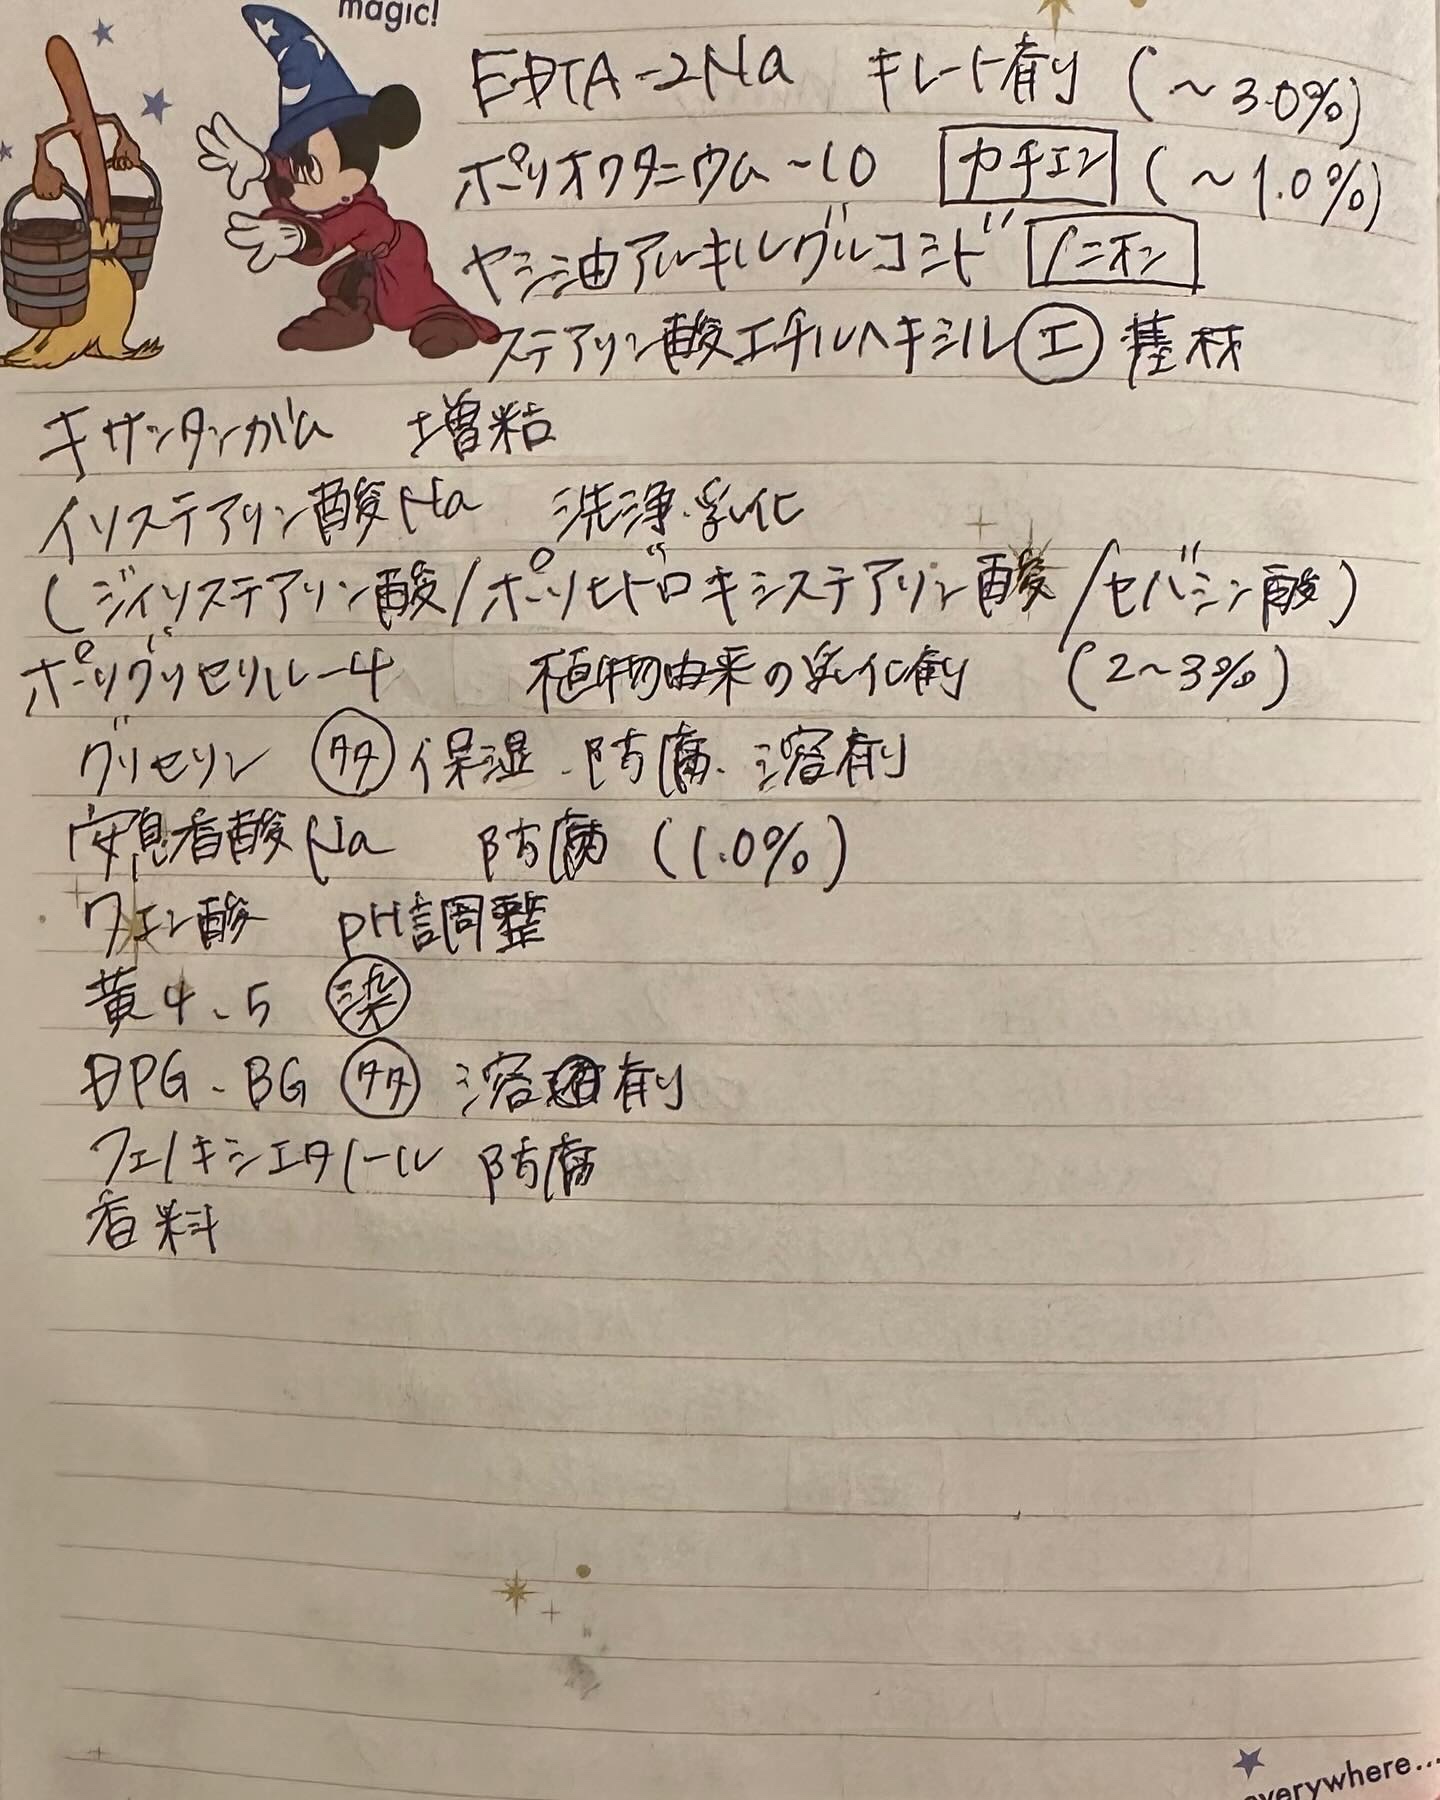 magic!
EDTA-2Na キレート剤 (~3.0%)
ポリオクタニウム-10 カチエン (~1.0%)
ヤシ油アルキルグルコシド ノニオン
ステアリン酸エチルヘキシル エ 基材
キサンタンガム 増粘
イソステアリン酸Na 洗浄・乳化
(ジイソステアリン酸/ポリヒドロキシステアリン酸/セバシン酸)
ポリグリセリル-4 植物由来の乳化剤 (2~3%)
グリセリン 多 保湿・防腐・溶剤
安息香酸Na 防腐 (1.0%)
クエン酸 pH調整
黄4、5 染
DPG・BG 多 溶剤
フェノキシエタノール 防腐
香料
everywhere...